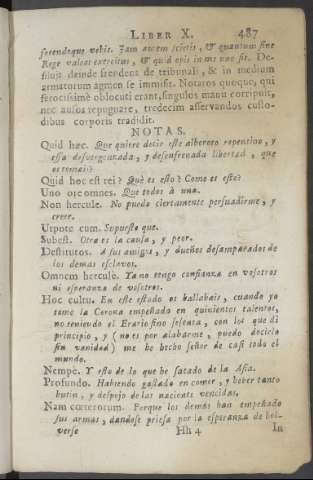 LIBER X. 487
ferendoque vobis. Jam autem scietis, & quantum sine
Rege valeat exercitus, & quid opis in me uno sit. De-
siluit deinde frendens de tribunali, & in medium
armatorum agmen se immisit. Notatos quoque, qui
ferocissimè oblocuti erant, singulos manu corripuit,
nec ausos repugnare, tredecim asservandos custo-
dibus corporis tradidit.
NOTAS.
Quid hæc. Que quiere decir este alboroto repentino, y
essa desvergonzada, y desenfrenada libertad, que
os tomais?
Quid hoc est rei? Què es esto? Como es este?
Uno ore omnes. Que todos à una.
Non hercule. No puedo ciertamente persuadirme, y
creer.
Utpote cum. Supuesto que.
Subest. Otra es la causa, y peor.
Destitutos. A sus amigos, y dueños desamparados de
los demas esclavos.
Omnem herculè. Ya no tengo confianza en vosotros
ni esperanza de vosotros.
Hoc cultu. En este estado os hallabais, cuando yo
tomè la Corona empeñada en quinientos talentos,
no teniendo el Erario sino sesenta, con los que di
principio, y (no es por alabarme, puedo decirlo
sin vanidad) me he hecho señor de casi todo el
mundo.
Nempè. Y esto de lo que he sacado de la Asia.
Profundo. Habiendo gastado en comer, y beber tanto
butin, y despojo de las naciones vencidas.
Nam cœterorum. Porque los demàs han empeñado
sus armas, dandose priesa por la esperanza de bol-
verse Hh 4 In